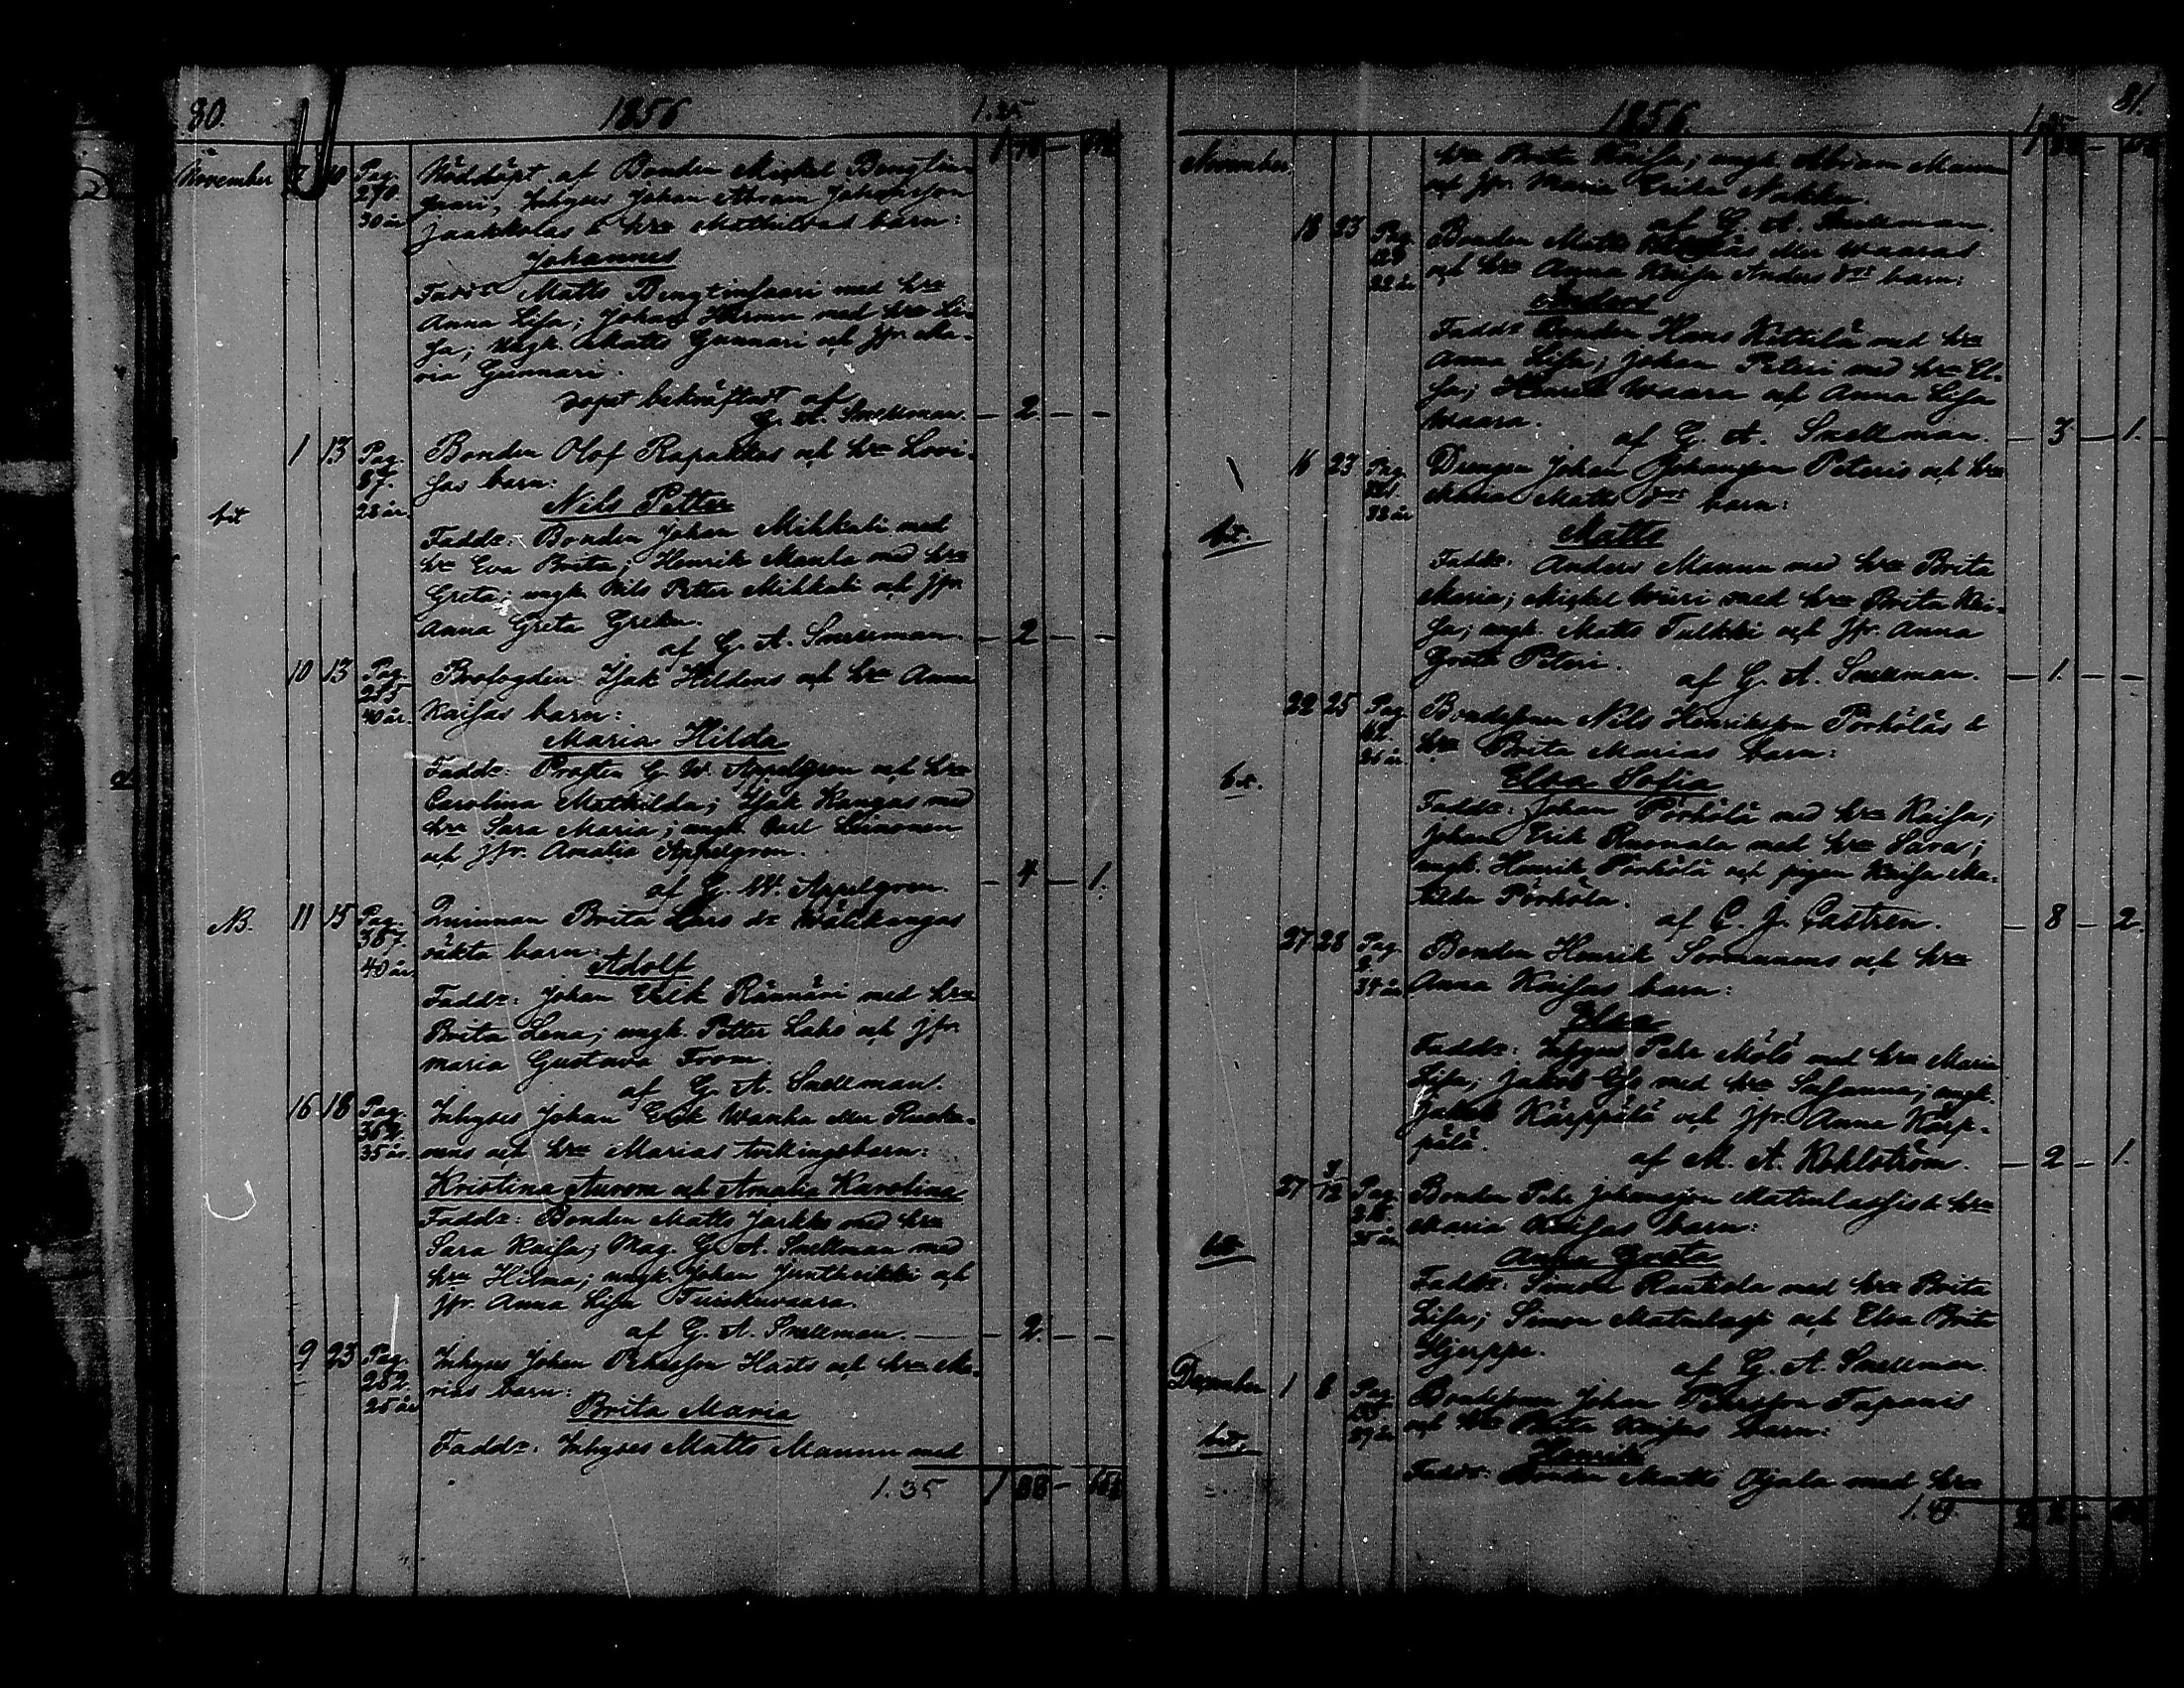 80.
1856
1.35
November
10
Pag.
270.
30 år
Nöddöpt af Bonden Mickel Bengtin-
saari, Inhyses Johan Abram
Jaakkolas & hru Mathildas barn:
Johannes
Faddr Matts Bengtinsaari med hru
Anna Lisa; Johan med hru Li-
sa; ungk. Matts Gunnari och jfr. Ma-
ria Gunnari.
dopet bekräftadt af
G. A. Snellman. — 2 — —
1 13 Pag.
87.
28 år.
Bonden Olof Rapakkos och hru Lovi-
sas barn:
Nils Petter
Faddr: Bonden Johan Mihkali med
hru Eva Brita; Henrik Maula med hru
Greta; ungk. Nils Petter Mihkali och jfr.
Anna Greta
af G. A. Snellman. — 2 — —
10 13 Pag.
40 år.
Isak Heldens och hru Anna
Kaisas barn:
Maria Hilda
Faddr: Prosten G. W. Appelgren och hru
Carolina Mathilda; Isak Kangas med
hru Sara Maria; ungk. Carl Leinonen
och jfr. Amalia Appelgren.
af G. W. Appelgren. — 4 — 1.
NB. 11 15 Pag.
367.
40 år.
Quinnan Brita Lars dr Wälikangas
oäkta barn:
Adolf
Faddr: Johan Erik Rännäri med hru
Brita Lena; ungk. Petter Laks och jfr.
Maria Gustava From.
af G. A. Snellman.
16 18 Pag.
35 år.
Inhyses Johan Erik Wanha eller Ruoka-
nens och hru Marias tvillingsbarn:
Kristina Aurora och Amalia Karolina
Faddr: Bonden Matts Jarkko med hru
Sara Kaisa; Mag. G. A. Snellman med
hru Hilma; ungk. Johan Junttheikki och
jfr. Anna Lisa Tuiskuvaara.
af G. A. Snellman. — 2. — —
9 23 Pag.
252.
25 år
Inhyses Johan Pehrsson Haits och hru Ma-
rias barn:
Brita Maria
Faddr: Inhyses Matts Mannu med
1.35 1 88 —
81.
1856.
November
hru Brita Kaisa; ungk. Abram Mannu
och jfr. Maria Erika Nokkla.
af G. A. Snellman.
18 23 Pag.
22 år
Bonden Matts eller Waaras
och hru Anna Kaisa Anders drs barn:
Anders
Faddr Bonden Hans Kittilä med hru
Anna Lisa; Johan Peteri med hru El-
sa; Henrik Waara och Anna Lisa
Waara.
af G. A. Snellman. — 3 — 1.
16 23 Pag.
38 år
Drengen Johan Johansson Peteris och hru
Maria Matts drs barn:
Matts
Faddr: Anders Mannu med hru Brita
Maria; Mickel Wiiri med hru Brita Kai-
sa; ungk. Matts Tulkki och jfr. Anna
Greta Peteri.
af G. A. Snellman. — 1. — —
22 25 Pag.
62.
36 år
Bondesonen Nils Henriksson Pörhöläs &
hru Brita Marias barn:
Elsa Sofia
Faddr: Johan Pörhölä med hru Kaisa;
Johan Erik Ruonala med hru Sara;
ungk. Henrik Pörhölä och pigan Kaisa Ma-
tilda Pörhölä.
af C. J. Castrén. — 8 — 2.
27 28 Pag.
2.
34 år
Bonden Henrik Sormunens och hru
Anna Kaisas barn:
Elsa
Faddr: Inhyses Pehr Mölö med hru Maria
Lisa; Jakob med hru Susanna; ungk.
Jakob Kärppälä och jfr. Anna Kärp-
pälä.
af M. A. Rohlström. — 2 — 1.
27 3/12 Pag.
35 år
Bonden Pehr Johansson Matinlassis & hru
Maria Kaisas barn:
Anna Greta
Faddr: Simon Rautiola med hru Brita
Lisa; Simon Matinlassi och Elsa Brita
Hjerppe.
af G. A. Snellman.
December 1 8 Pag.
Bondesonen Johan Pehrsson Tapanis
och hru Brita Kaisas barn:
Henrik
Faddr: Bonden Matts Ojala med hru